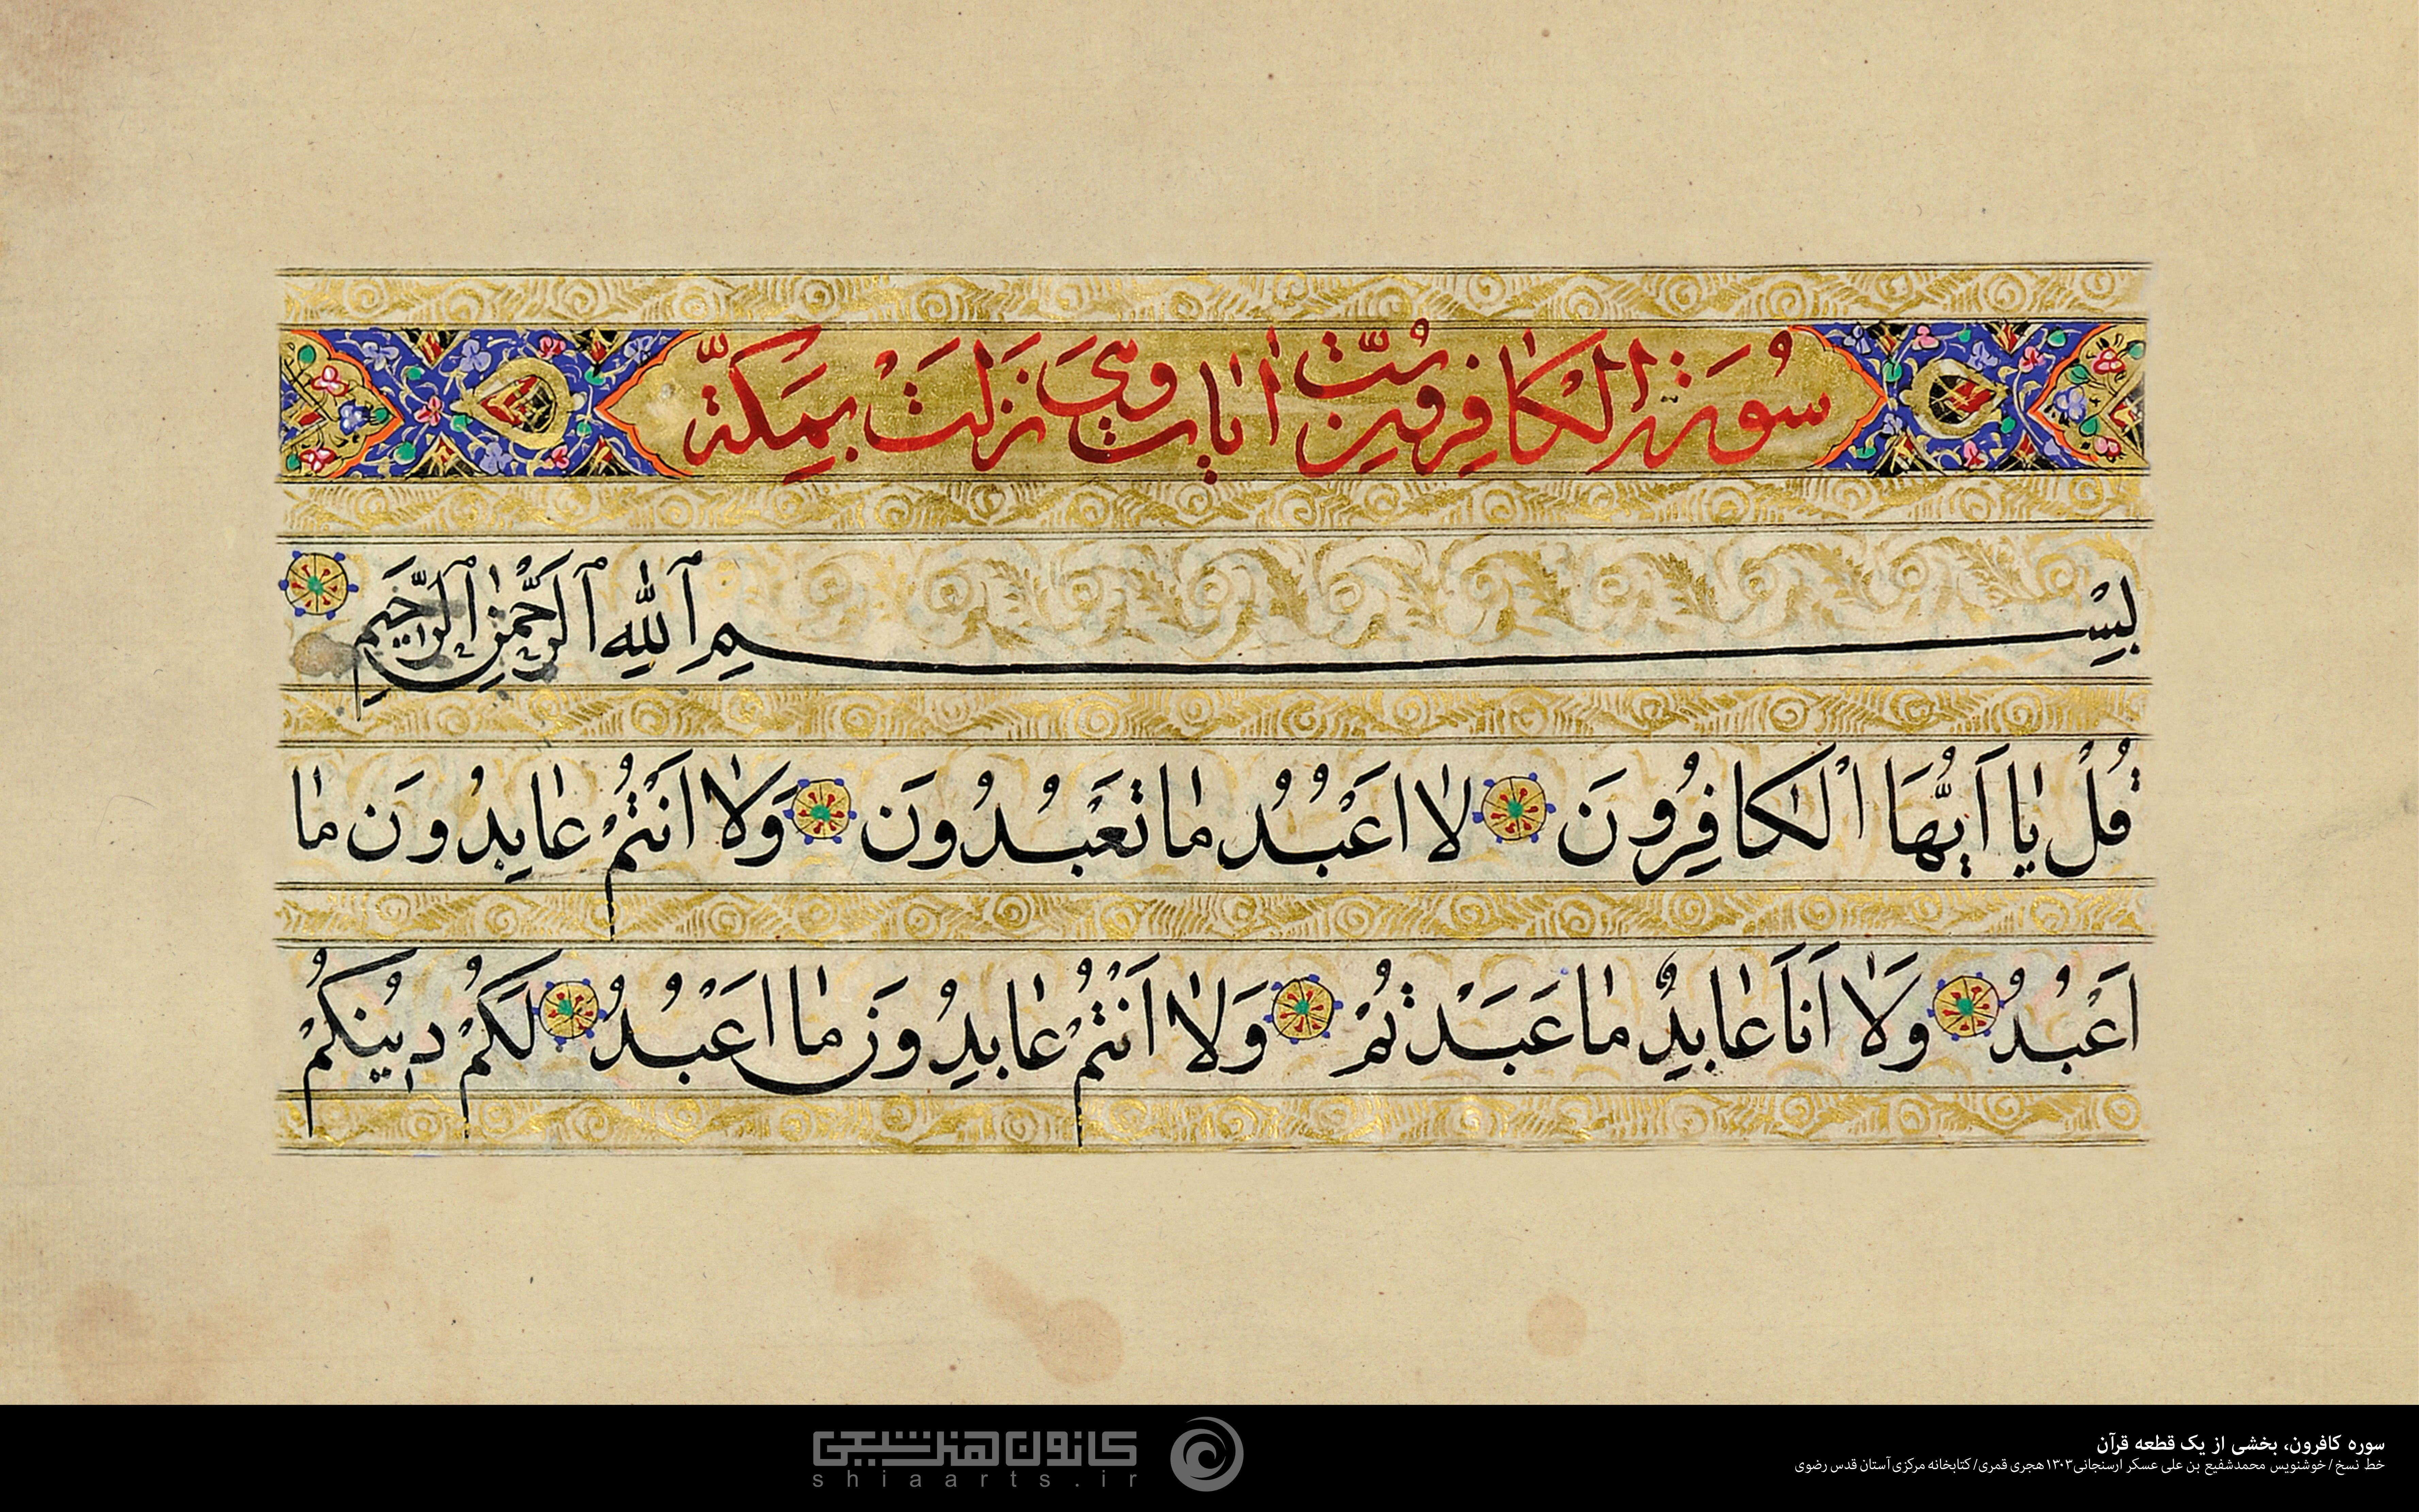 سُورَةُ الْكٰافِرِينَ سِتُّ اٰيٰاتٍ وَهِيَ نَزَلَتْ بِمَكَّةَ
بِسْمِ ٱللّٰهِ ٱلرَّحْمٰنِ ٱلرَّحِيمِ
قُلْ يٰا اَيُّهَا الْكٰافِرُونَ لٰا اَعْبُدُ مٰا تَعْبُدُونَ وَلٰا اَنْتُمْ عٰابِدُونَ مٰا
اَعْبُدُ وَلٰا اَنَا عٰابِدٌ مٰا عَبَدْتُمْ وَلٰا اَنْتُمْ عٰابِدُونَ مٰا اَعْبُدُ لَكُمْ دِينُكُمْ
سوره کافرون، بخشی از یک قطعه قرآن
خط نسخ / خوشنویس محمدشفیع بن علی عسکر ارسنجانی ۱۳۰۳ هجری قمری / کتابخانه مرکزی آستان قدس رضوی
کانون هنر شیعی
shiaarts.ir